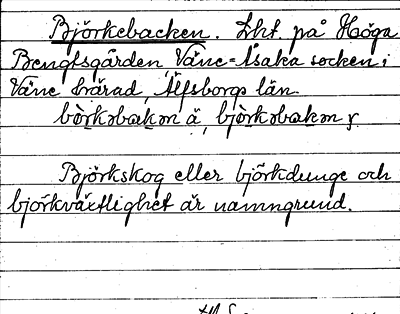 Björkebacken. Lht. på Höga
Bengtsgården Väne-Åsaka socken i
Väne härad, Älfsborgs län.
bö̀rkəbakən ä, bjö̀rkəbakən y
Björkskog eller björkdunge och
björkväxtlighet är namngrund.